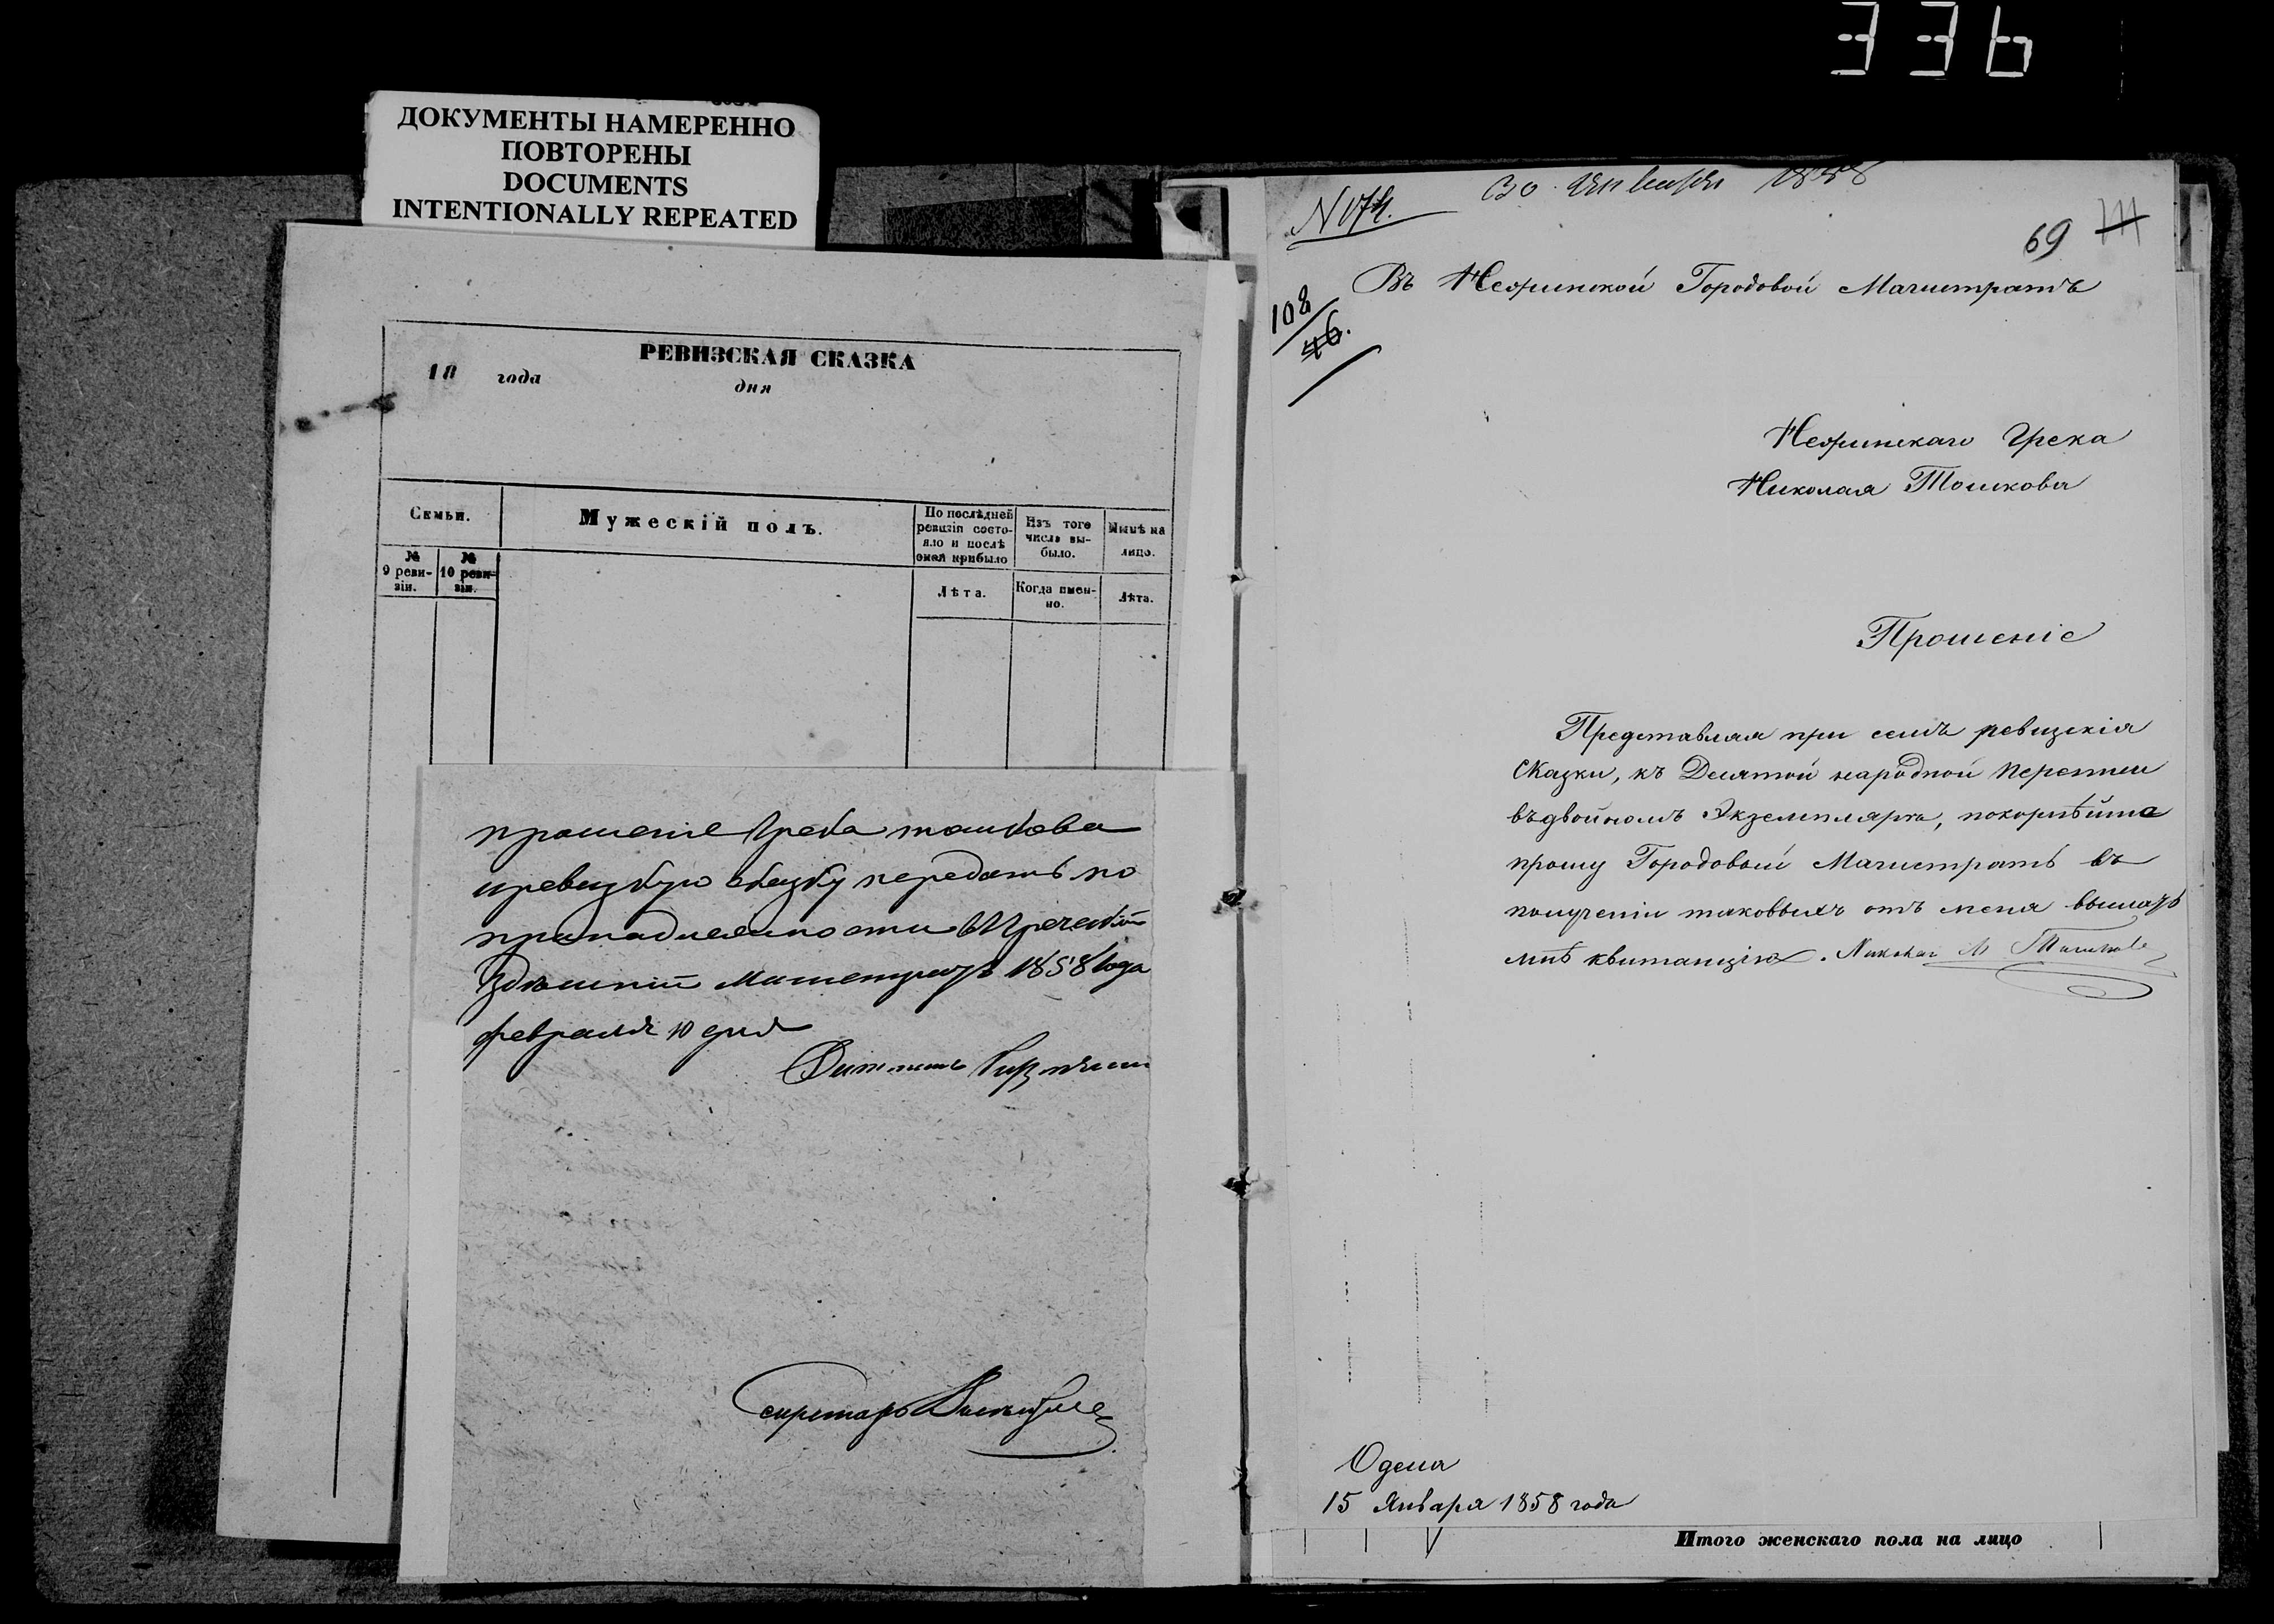 336
ДОКУМЕНТЫ НАМЕРЕННО
ПОВТОРЕНЫ
DOCUMENTS
INTENTIONALLY REPEATED
РЕВИЗСКАЯ СКАЗКА
18 года дня
Семьи.
Мужескій полъ.
По послѣдней ревизіи состояло и послѣ онаго прибыло
Изъ того числа выбыло.
Нынѣ на лицо.
№ 9 ревизіи.
№ 10 ревизіи.
Лѣта.
Когда именно.
Лѣта.
прошеніе Грека Тошкова
и ревизкую сказку передать по
принадлежности в Греческій
Здешній Магистратъ 1858 года
февраля 10 дня
секретарь
30 Января 1858
69
108
46.
Въ Нежинской Городовой Магистратъ
Нежинскаго Грека
Николая Тошкова
Прошеніе
Представляя при семъ ревизскія
Сказки, къ Десятой народной Переписи
въ двойномъ Экземпляре, покорнѣйше
прошу Городовый Магистратъ въ
полученіи таковыхъ отъ меня выслать
мнѣ квитанцію. Николай Тошковъ
Одесса
15 Января 1858 года
Итого женскаго пола на лицо